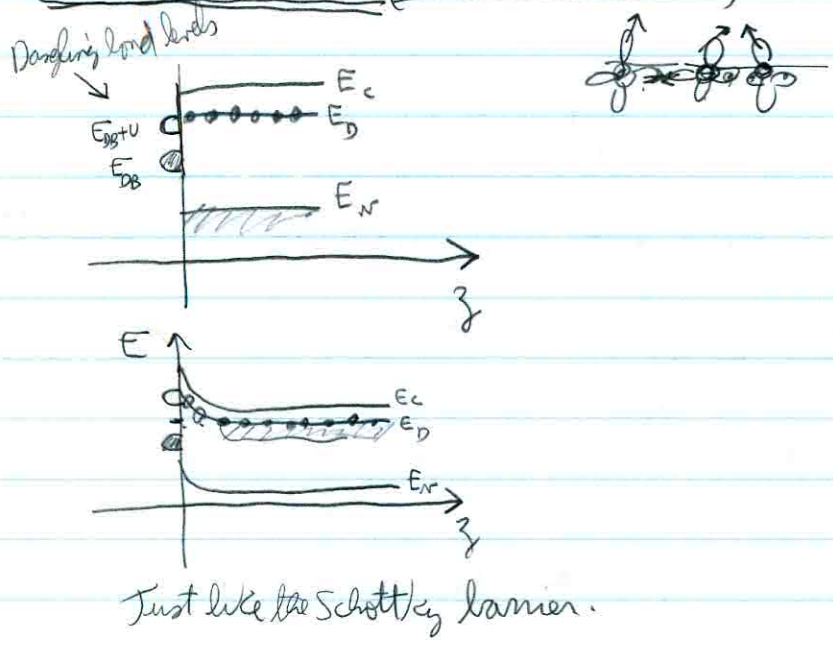 Dangling bond levels
E_c
E_DB+U
E_D
E_DB
E_v
z
E
E_c
E_D
E_v
z
Just like the Schottky barrier.